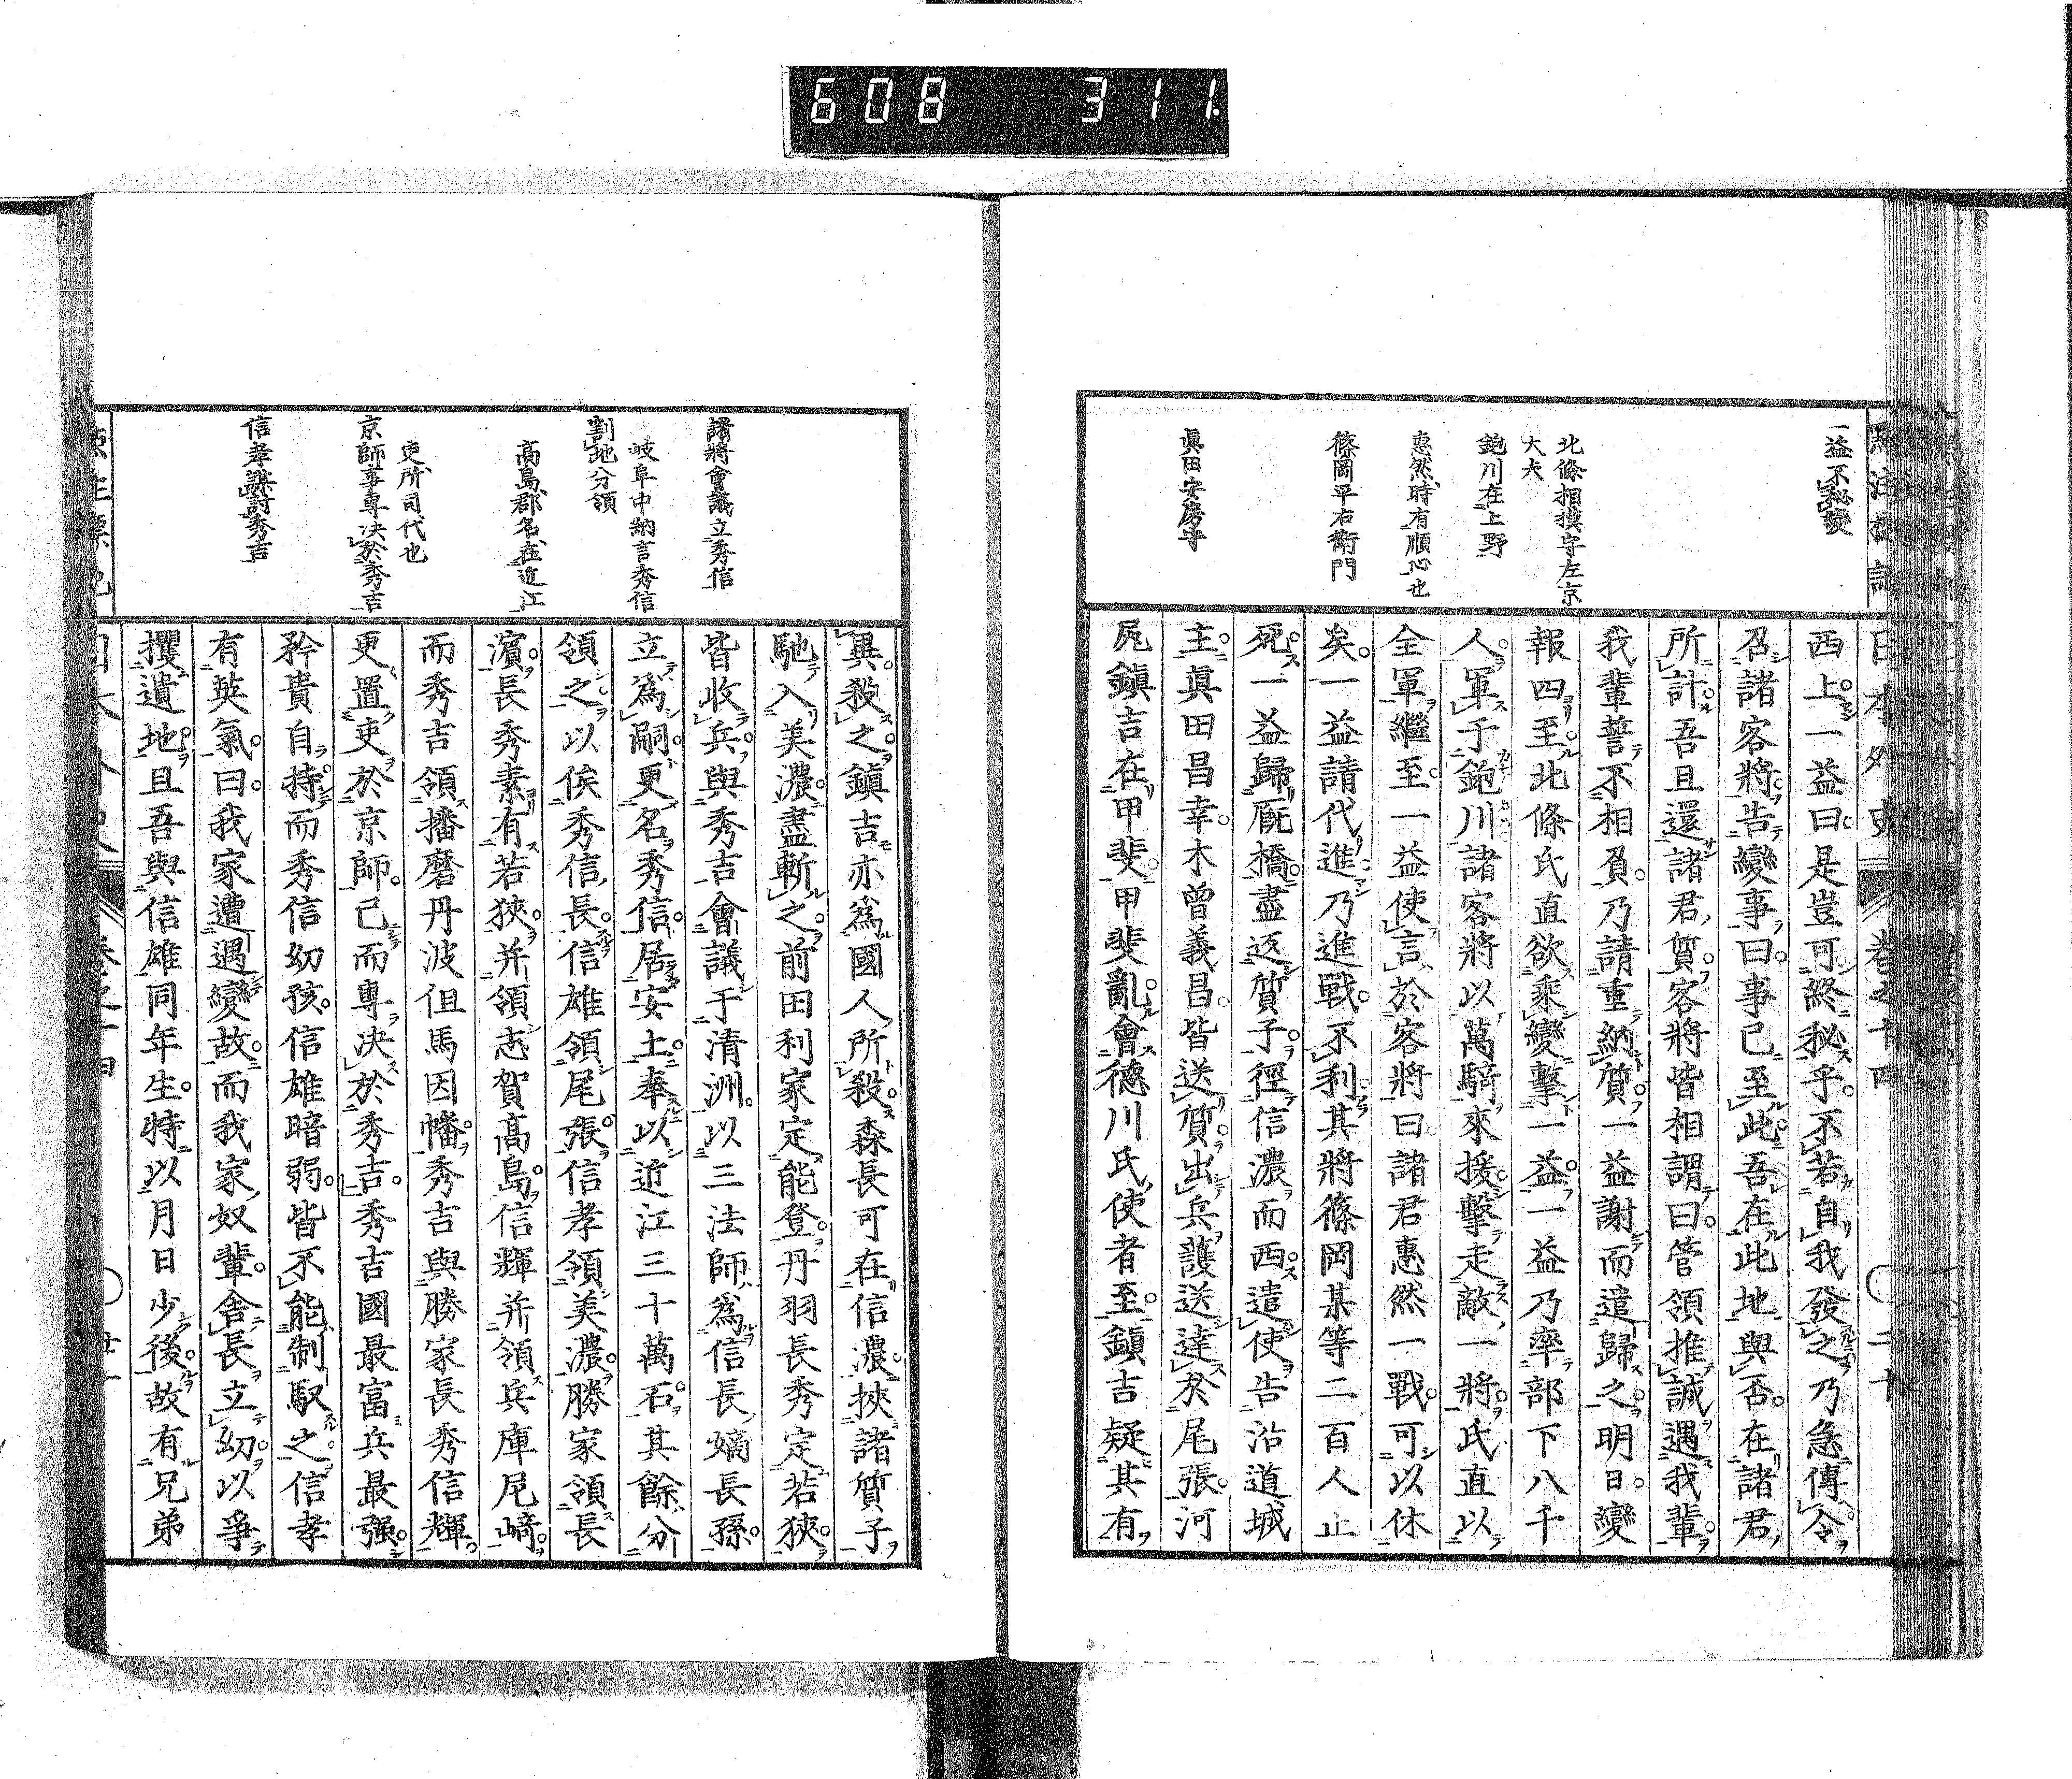 608 311.
一益不秘變
北條相摸守左京
大夫
鉋川在上野
惠然時有順心也
篠岡平右衛門
眞田安房守
日本外史 卷之十四 ○二十
西上一益曰是豈可終秘乎不若自我發之乃急傳令
召諸客將告變事曰事已至此吾在此地與否在諸君
所計吾且還諸君質客將皆相謂曰管領推誠遇我輩
我輩誓不相負乃請重納質一益謝而遣歸之明日變
報四至北條氏直欲乘變擊一益一益乃率部下八千
人軍于鉋川諸客將以萬騎來援擊走敵一將氏直以
全軍繼至一益使言於客將曰諸君惠然一戰可以休
矣一益請代進乃進戰不利其將篠岡某等二百人止
死一益歸厩橋盡返質子徑信濃而西遣使告沿道城
主眞田昌幸木曾義昌皆送質出兵護送達於尾張河
尻鎭吉在甲斐甲斐亂會德川氏使者至鎭吉疑其有
諸將會議立秀信
岐阜中納言秀信
割地分領
高島郡名在近江
吏所司代也
京師事專决於秀吉
信孝謀討秀吉
異殺之鎭吉亦爲國人所殺森長可在信濃挾諸質子
馳入美濃盡斬之前田利家定能登丹羽長秀定若狹
皆收兵與秀吉會議于清洲以三法師爲信長嫡長孫
立爲嗣更名秀信居安土奉以近江三十萬石其餘分
領之以俟秀信長信雄領尾張信孝領美濃勝家領長
濱長秀素有若狹并領志賀高島信輝并領兵庫尼﨑
而秀吉領播磨丹波但馬因幡秀吉與勝家長秀信輝
更置吏於京師已而專决於秀吉秀吉國最富兵最强
矜貴自持而秀信幼孩信雄暗弱皆不能制馭之信孝
有英氣曰我家遭遇變故而我家奴輩舍長立幼以爭
攫遺地且吾與信雄同年生特以月日少後故有兄弟